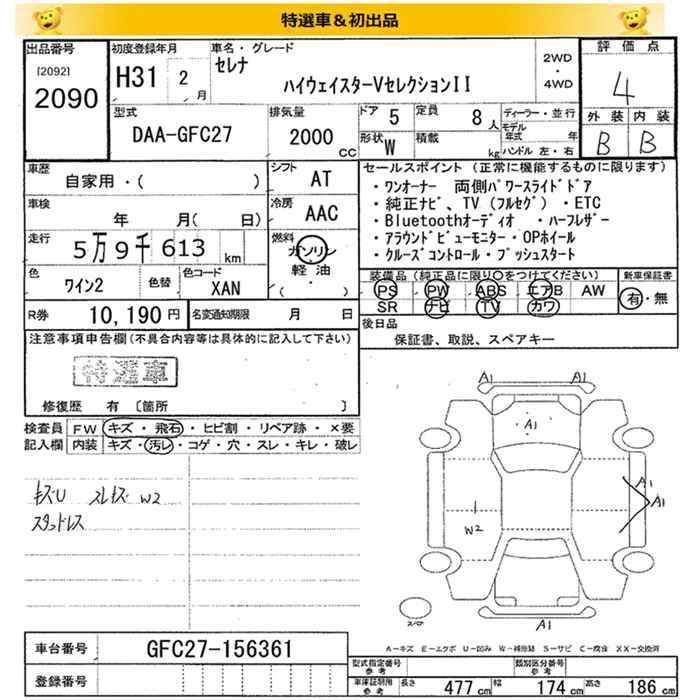 特選車&初出品
出品番号
[2092]
2090
初度登録年月
H31 2 月
車名・グレード
セレナ
ハイウェイスターVセレクションII
2WD
・
4WD
評価点
4
外装 内装
B B
型式
DAA-GFC27
排気量
2000 CC
ドア 5
定員 8 人
形状 W
積載 kg
ディーラー・並行
モデル年式 年
ハンドル 左・右
車歴
自家用・( )
シフト AT
車検
年 月( 日)
冷房 AAC
走行
5万9千613 km
燃料
ガソリン
軽油
( )
色
ワイン2
色替
色コード
XAN
R券 10,190 円
名変通知期限 月 日
セールスポイント(正常に機能するものに限ります)
・ワンオーナー 両側パワースライドドア
・純正ナビ、TV(フルセグ)・ETC
・Bluetoothオーディオ ・ハーフレザー
・アラウンドビューモニター・OPホイール
・クルーズコントロール・プッシュスタート
装備品(純正品に限り○をつけてください)
PS PW ABS エアB AW
SR ナビ TV カワ
新車保証書
有・無
後日品
保証書、取説、スペアキー
注意事項申告欄(不具合内容等は具体的に記入して下さい)
特選車
修復歴 有 [箇所 ]
検査員記入欄
FW キズ・飛石・ヒビ割・リペア跡・×要
内装 キズ・汚レ・コゲ・穴・スレ・キレ・破レ
キズU スレキズ W2
スタッドレス
A1 A1
A1
A1
A1
W2
A1
スペア
A-キズ E-エクボ U-凹み W-補修跡 S-サビ C-腐食 XX-交換済
車台番号 GFC27-156361
登録番号
型式指定番号 参考
類別区分番号 参考
車庫証明用 参考
長さ 477 cm 幅 174 cm 高さ 186 cm